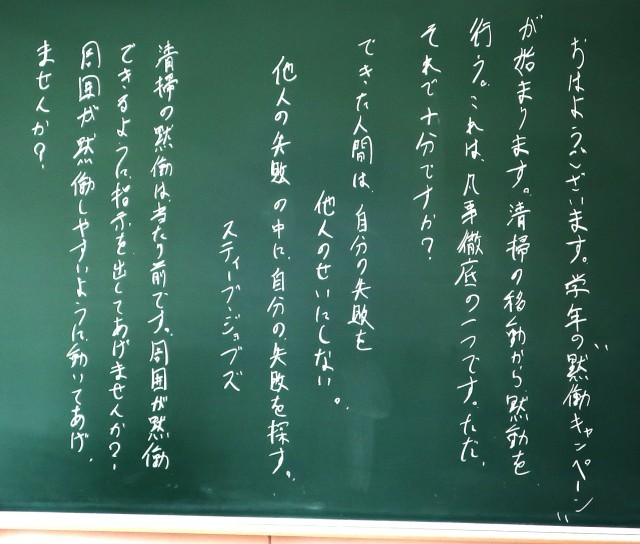 おはようございます。学年の〝黙働キャンペーン〟
が始まります。清掃の移動から黙動を
行う。これは、凡事徹底の一つです。ただ、
それで十分ですか？
できた人間は、自分の失敗を
他人のせいにしない。
他人の失敗の中に、自分の失敗を探す。
スティーブ・ジョブズ
清掃の黙働は当たり前です。周囲が黙働
できるように指示を出してあげませんか？
周囲が黙働しやすいように、動いてあげ
ませんか？